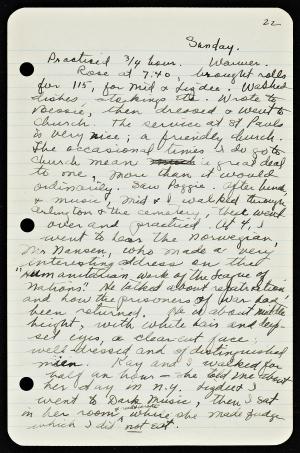 22
Sunday.
Practiced 3/4 hour. Warmer.
Rose at 7:40, brought rolls
for 115, for Mid & Lizdee. Washed
dishes, stockings etc. Wrote to
Bessie, then dressed & went to
Church. The service at St Pauls
is very nice; a friendly church.
The occasional times I do go to
Church mean a great deal
to one, more than it would
ordinarily. Saw Poggie. After lunch
& music, Mid & I walked through
Arlington & the cemetery, then went
over and practiced. At 4, I
went to hear the Norwegian,
Mr. Nansen, who made a very
interesting address on the
"Humanitarian Work of the League of
Nations". He talked about repatriation,
and how the prisoners of war had
been returned. He is about middle
height, with white hair and deep-
set eyes, a clear-cut face;
well dressed and of distinguished
mien. Kay and I walked for
half an hour – she told me about
her day in N.Y. Lizdee & I
went to Dark Music, then I sat
in her room where she made fudge
which I did not eat.